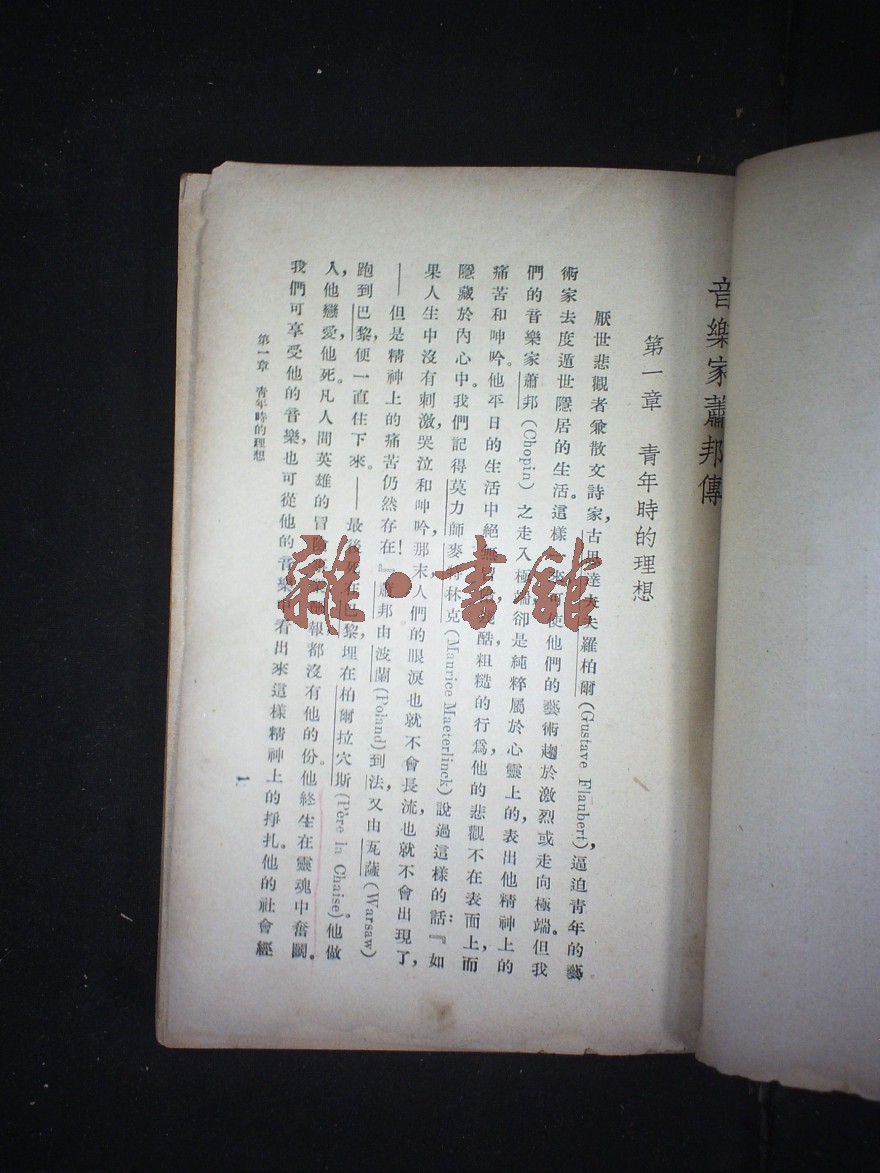 音樂家蕭邦傳
第一章 青年時的理想
厭世悲觀者兼散文詩家古思達夫夫羅柏爾(Gustave Flaubert),逼迫青年的藝
術家去度遁世隱居的生活。這樣一來可使他們的藝術趨於激烈或走向極端。但我
們的音樂家蕭邦(Chopin)之走入極端卻是純粹屬於心靈上的,表出他精神上的
痛苦和呻吟。他平日的生活中絕無 酷粗糙的行爲,他的悲觀不在表面上,而
隱藏於內心中。我們記得莫力師麥特林克(Maurice Maeterlinck)說過這樣的話:『如
果人生中沒有刺激,哭泣和呻吟,那末人們的眼淚也就不會長流,也就不會出現了,
——但是精神上的痛苦仍然存在!』蕭邦由波蘭(Poland)到法,又由瓦薩(Warsaw)
跑到巴黎,便一直住下來。——最後死在巴黎,埋在柏爾拉穴斯(Père la Chaise)。他做
人,他戀愛,他死。凡人間英雄的冒險 報都沒有他的份。他終生在靈魂中奮鬭。
我們可享受他的音樂,也可從他的音樂中看出來這樣精神上的掙扎。他的社會經
第一章 青年時的理想
1
雜·書館